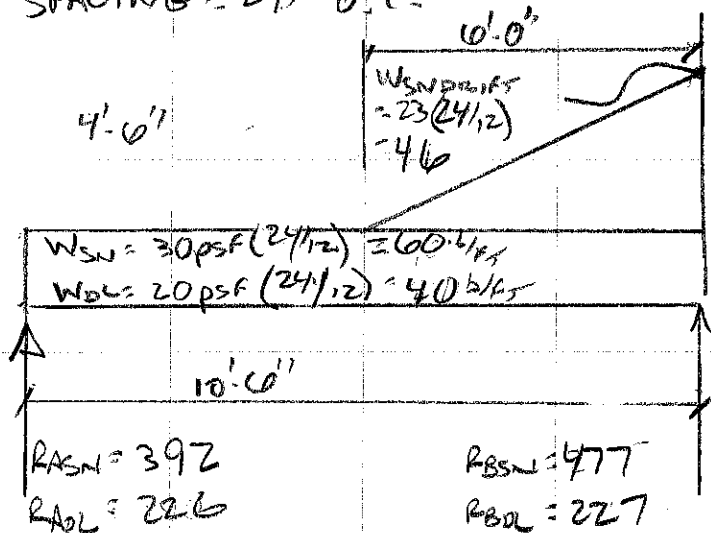 SPACING = 24" O.C.
6'-0"
WSNDRIFT
= 23(24/12)
= 46
4'-6"
WSN = 30psf (24/12) = 60 lb/FT
WDL = 20psf (24/12) = 40 lb/FT
10'-6"
RASN = 392
RBSN = 477
RADL = 226
RBDL = 227